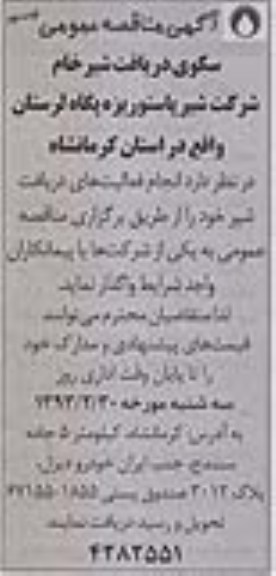 آگهی مناقصه عمومی
سکوی دریافت شیر خام
شرکت شیر پاستوریزه پگاه لرستان
واقع در استان کرمانشاه
در نظر دارد انجام فعالیت‌های دریافت
شیر خود را از طریق برگزاری مناقصه
عمومی به یکی از شرکت‌ها یا پیمانکاران
واجد شرایط واگذار نماید.
لذا متقاضیان محترم می‌توانند
قیمت‌های پیشنهادی و مدارک خود
را تا پایان وقت اداری روز
سه شنبه مورخه ۱۳۹۳/۲/۳۰
به آدرس: کرمانشاه، کیلومتر ۵ جاده
سنندج، جنب ایران خودرو دیزل،
پلاک ۳۰۱۲ صندوق پستی ۱۸۵۵-۶۷۱۵۵
تحویل و رسید دریافت نمایند.
۴۲۸۲۵۵۱